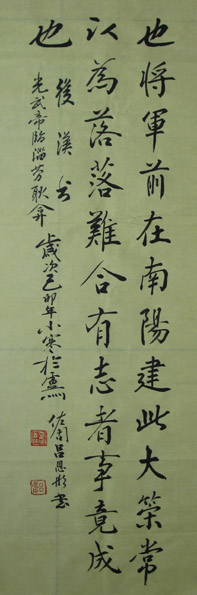 也將軍前在南陽建此大策常
以為落落難合有志者事竟成
也
後漢書
光武帝臨淄勞耿弇
歲次己卯年小寒於
佐周呂恩